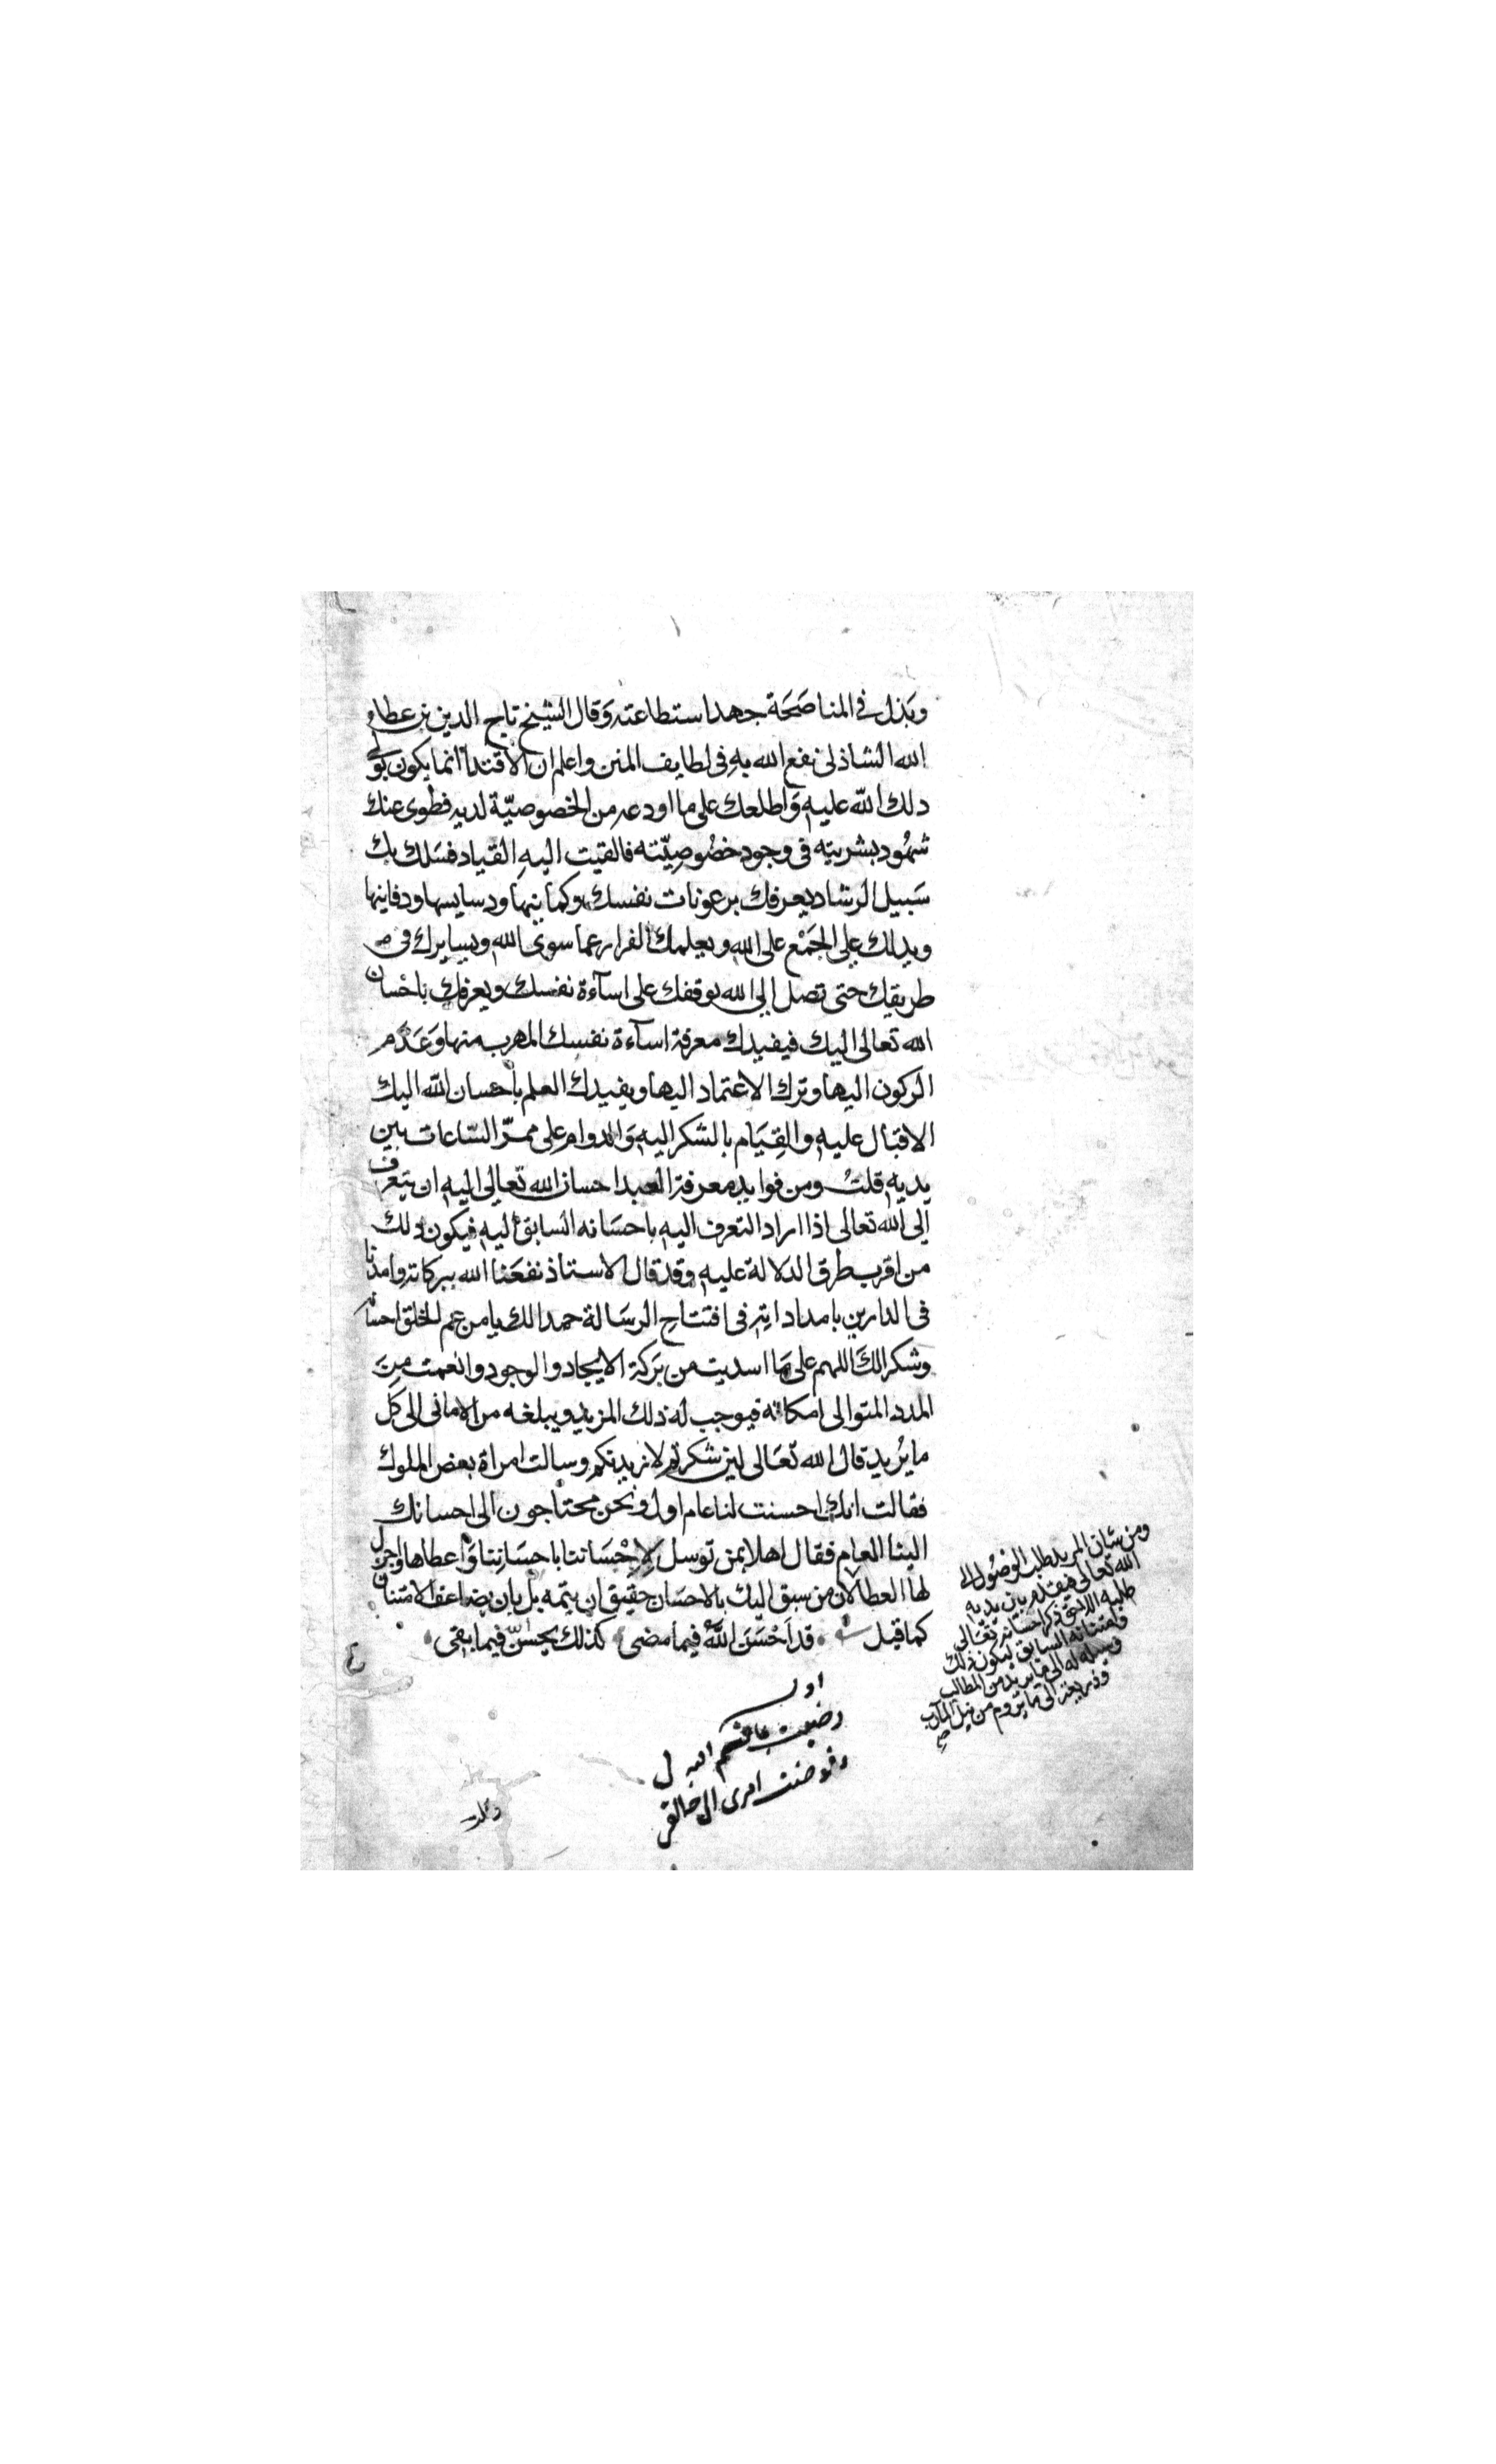 وبَذل في المناصَحَة جهد استطاعته وَقال الشيخ تاج الدين بن عطاء
الله الشاذلى نفع الله بهِ فى لطايف المنن واعلم ان الاقتدآ انما يكون بولى
دلك اللّه عليهِ وَاطلعك على ما اودعه من الخصوصيّة لديه فطوى عنك
شهُود بشريته فى وجود خصُوصِيّته فالقيت اليهِ القياد فسَلك بك
سَبيل الرشاد يعرفك برعونات نفسك وكماينها ودسايسها ودفاينها
ويدلك على الجَمْع على الله ويعلمك الفرار عما سوى الله ويسايرك فى
طريقك حتى تصل إلى الله يوقفك على اسآءة نفسك ويعرفك باحْسان
الله تعالى اليك فيفيدك معرفة اسآءة نفسك المهرب منها وَعَدَم
الركون اليها وترك الاعتماد اليها ويفيدك العلم باحسان اللّه اليك
الاقبال عليهِ والقِيَام بالشكر اليهِ وَالدوام على ممرّ السّاعات بين
يديهِ قلتُ ومن فوايد معرفة العبد احسان الله تعالى اليهِ ان يتعرف
الى الله تعالى اذا اراد التعرف اليهِ باحسَانه السابق اليهِ فيكون ذلك
من اقرب طرق الدلالة عليهِ وقد قال الاستاذ نفعَنا الله ببركاته وامدنا
فى الدارين بامداداتِه فى افتتاح الرسَالة حمدا لك يامن عم الخلق احسانه
وشكرا لكَ اللهم على مَا اسديت من بَركة الايجاد والوجود وانعمت مِنَ
المدد المتوالى امكانه فيوجب له ذلك المزيد ويبلغه من الامانى الى كل
ما يُريد قال الله تعَالى لين شكرتم لازيدنكم وسالت امراة بعض الملوك
فقالت انك احسنت لنا عام اول ونحن محتاجون الى احسانك
الينا العام فقال اهلا بمن توسل لإحْسَاننا باحسَانِنا وَاعطاها واجزل
لها العطا لان من سبق اليك بالاحسَان حقيق ان يتمه بل بان يضاعف الامتنان
كما قيل قد اَحْسَنَ اللّهُ فيما مضى كذلك يحسنّ فيما بقى
ومن شان المريد طلب الوصُول الى
الله تعالى فيقدم بين يديه
طلبه اللايق ذكر احسَانه تعَالى
وامتنانه السابق ليكون ذلك
وسيله له الى ما يريد من المطالب
وذريعة الى ما يروم من نيل المآرب
صح
اول
رضيت بما قسم الله لى
وفوضت امرى الى خالقى